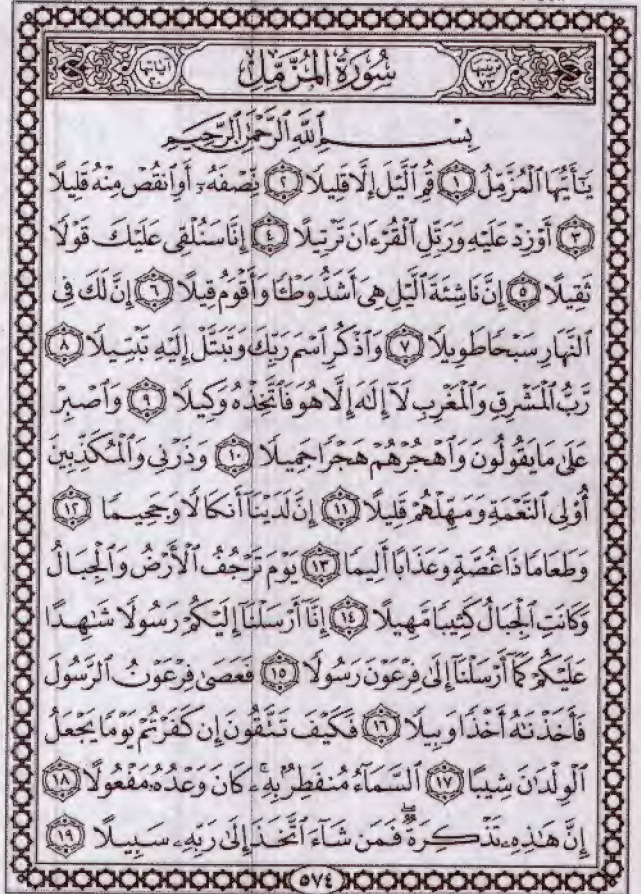 ترتيبها ٧٣ سُورَةُ المُزَّمِّل آياتها
بِسْمِ ٱللَّهِ ٱلرَّحْمَٰنِ ٱلرَّحِيمِ
يَٰٓأَيُّهَا ٱلْمُزَّمِّلُ ١ قُمِ ٱلَّيْلَ إِلَّا قَلِيلًا ٢ نِّصْفَهُۥٓ أَوِ ٱنقُصْ مِنْهُ قَلِيلًا
٣ أَوْ زِدْ عَلَيْهِ وَرَتِّلِ ٱلْقُرْءَانَ تَرْتِيلًا ٤ إِنَّا سَنُلْقِى عَلَيْكَ قَوْلًا
ثَقِيلًا ٥ إِنَّ نَاشِئَةَ ٱلَّيْلِ هِىَ أَشَدُّ وَطْـًٔا وَأَقْوَمُ قِيلًا ٦ إِنَّ لَكَ فِى
ٱلنَّهَارِ سَبْحًا طَوِيلًا ٧ وَٱذْكُرِ ٱسْمَ رَبِّكَ وَتَبَتَّلْ إِلَيْهِ تَبْتِيلًا ٨
رَّبُّ ٱلْمَشْرِقِ وَٱلْمَغْرِبِ لَآ إِلَٰهَ إِلَّا هُوَ فَٱتَّخِذْهُ وَكِيلًا ٩ وَٱصْبِرْ
عَلَىٰ مَا يَقُولُونَ وَٱهْجُرْهُمْ هَجْرًا جَمِيلًا ١٠ وَذَرْنِى وَٱلْمُكَذِّبِينَ
أُو۟لِى ٱلنَّعْمَةِ وَمَهِّلْهُمْ قَلِيلًا ١١ إِنَّ لَدَيْنَآ أَنكَالًا وَجَحِيمًا ١٢
وَطَعَامًا ذَا غُصَّةٍ وَعَذَابًا أَلِيمًا ١٣ يَوْمَ تَرْجُفُ ٱلْأَرْضُ وَٱلْجِبَالُ
وَكَانَتِ ٱلْجِبَالُ كَثِيبًا مَّهِيلًا ١٤ إِنَّآ أَرْسَلْنَآ إِلَيْكُمْ رَسُولًا شَٰهِدًا
عَلَيْكُمْ كَمَآ أَرْسَلْنَآ إِلَىٰ فِرْعَوْنَ رَسُولًا ١٥ فَعَصَىٰ فِرْعَوْنُ ٱلرَّسُولَ
فَأَخَذْنَٰهُ أَخْذًا وَبِيلًا ١٦ فَكَيْفَ تَتَّقُونَ إِن كَفَرْتُمْ يَوْمًا يَجْعَلُ
ٱلْوِلْدَٰنَ شِيبًا ١٧ ٱلسَّمَآءُ مُنفَطِرٌۢ بِهِۦ ۚ كَانَ وَعْدُهُۥ مَفْعُولًا ١٨
إِنَّ هَٰذِهِۦ تَذْكِرَةٌ ۖ فَمَن شَآءَ ٱتَّخَذَ إِلَىٰ رَبِّهِۦ سَبِيلًا ١٩
٥٧٤